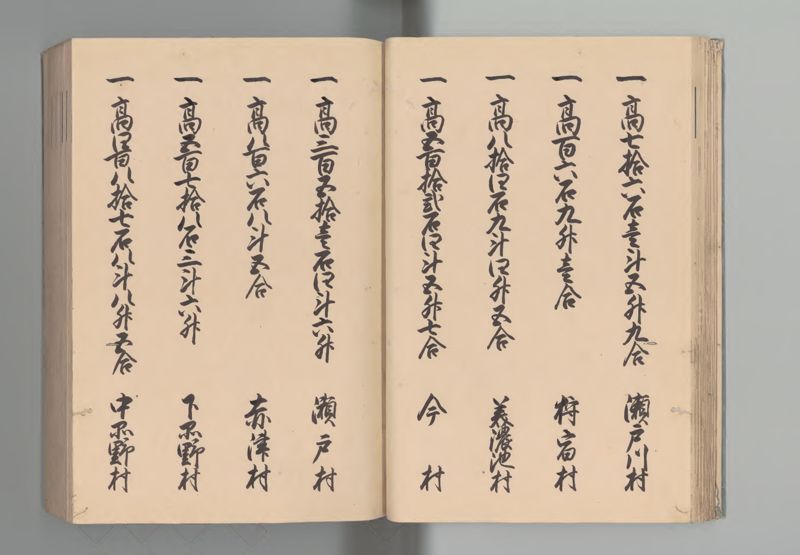 一 高七拾六石壹斗五升九合 瀬戸川村
一 高百六石九升壹合 狩宿村
一 高八拾四石九斗四升五合 美濃池村
一 高五百拾弐石四斗五升七合 今村
一 高三百五拾壹石四斗六升 瀬戸村
一 高八百六石八斗五合 赤津村
一 高五百七拾八石三斗六升 下品野村
一 高四百八拾七石八斗八升五合 中品野村